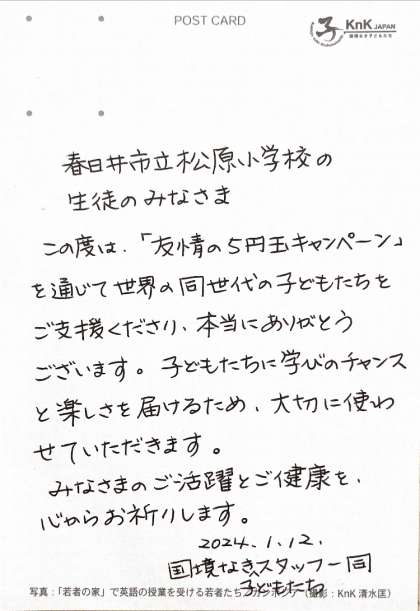 POST CARD
KnK JAPAN
国境なき子どもたち
春日井市立松原小学校の
生徒のみなさま
この度は、「友情の5円玉キャンペーン」
を通じて世界の同世代の子どもたちを
ご支援くださり、本当にありがとう
ございます。子どもたちに学びのチャンス
と楽しさを届けるため、大切に使わ
せていただきます。
みなさまのご活躍とご健康を、
心からお祈りします。
2024.1.12.
国境なきスタッフ一同
子どもたち
写真:「若者の家」で英語の授業を受ける若者たち カンボジア (撮影:KnK 清水匡)